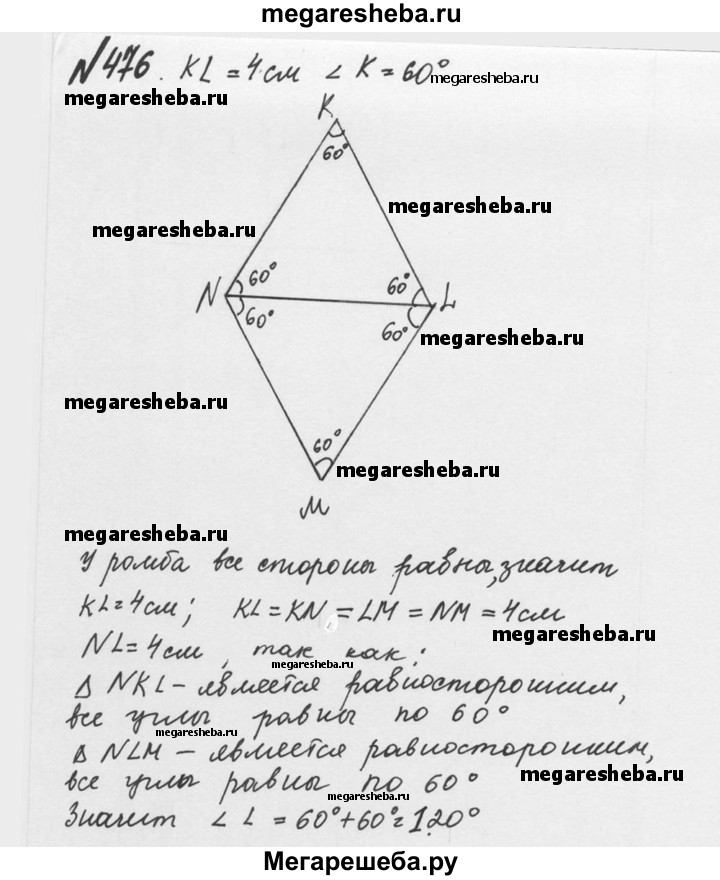 megaresheba.ru
№476. KL = 4 см ∠ K = 60° megaresheba.ru
megaresheba.ru
K
60°
megaresheba.ru
megaresheba.ru
N 60° 60° L
60° 60°
megaresheba.ru
megaresheba.ru
60°
megaresheba.ru
M
megaresheba.ru
У ромба все стороны равны, значит
KL = 4 см; KL = KN = LM = NM = 4 см
megaresheba.ru
NL = 4 см, так как:
megaresheba.ru
Δ NKL – является равносторонним,
все углы равны по 60°
megaresheba.ru
Δ NLM – является равносторонним,
все углы равны по 60°
megaresheba.ru
megaresheba.ru
Значит ∠ L = 60° + 60° = 120°
Мегарешеба.ру